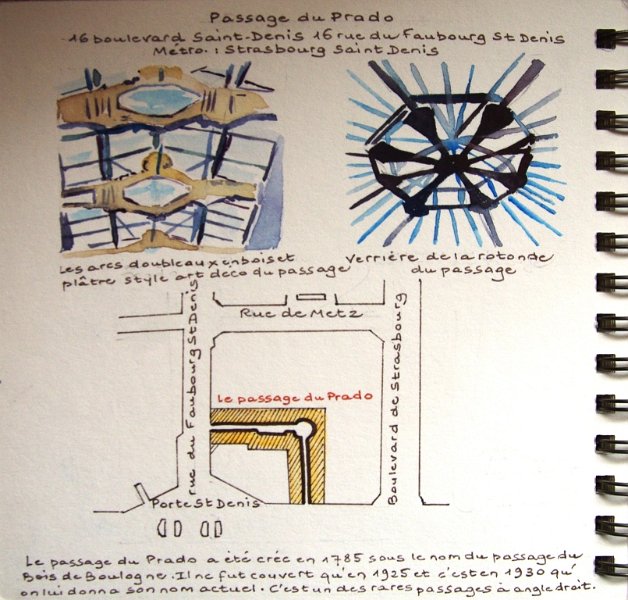 Passage du Prado
16 boulevard Saint-Denis 16 rue du Faubourg St Denis
Métro. : Strasbourg Saint Denis
Les arcs doubleaux en bois et
plâtre style art deco du passage
Verrière de la rotonde
du passage
Rue de Metz
rue du Faubourg St Denis
Boulevard de Strasbourg
Le passage du Prado
Porte St Denis
Le passage du Prado a été créé en 1785 sous le nom du passage du
Bois de Boulogne. Il ne fut couvert qu'en 1925 et c'est en 1930 qu'
on lui donna son nom actuel. C'est un des rares passages à angle droit.